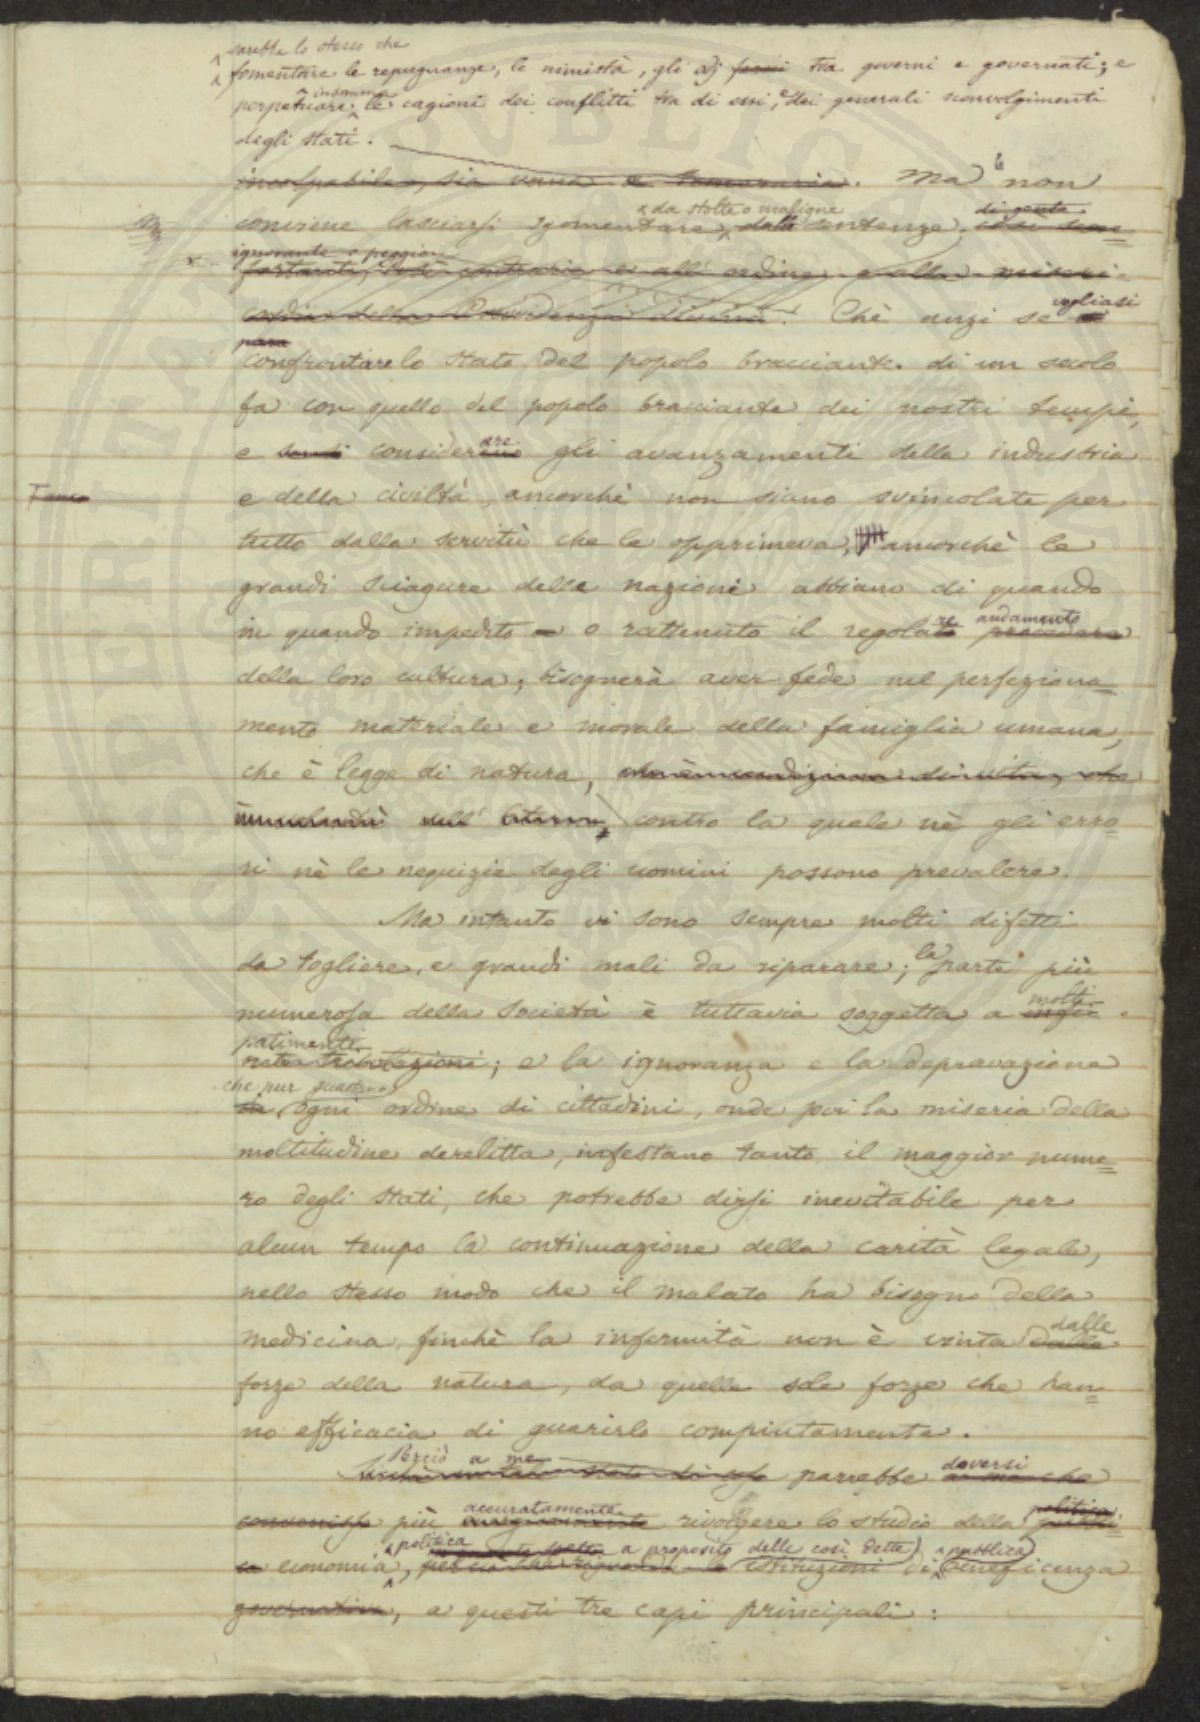 sarebbe lo stesso che
fomentare le repugnanze, le nimistà, gli odj tra governi e governati; e
perpetuare insomma le cagioni dei conflitti tra di essi, e dei generali sconvolgimenti
degli stati.
incolpabile, sia vana e temeraria. Ma non
conviene lasciarsi sgomentare da stolte o maligne dalle sentenze di gente
ignorante o peggiore
fortanti, così contrarie e all' ordine e alla miseri-
cordia della Provvidenza divina! Chè anzi se vogliasi
para
confrontare lo stato del popolo bracciante di un secolo
fa con quello del popolo bracciante dei nostri tempi,
e considerare gli avanzamenti della industria
Fanco
e della civiltà, ancorchè non siano svincolate per
tutto dalla servitù che le opprimeva, ancorchè le
grandi sciagure delle nazioni abbiano di quando
in quando impedito o rattenuto il regolare andamento procedere
della loro cultura; bisognerà aver fede nel perfeziona=
mento materiale e morale della famiglia umana,
che è legge di natura, che è condizione di vita, che
dell' Eterno, contro la quale nè gli erro=
ri nè le nequizie degli uomini possono prevalere.
Ma intanto vi sono sempre molti difetti
da togliere, e grandi mali da riparare; la parte più
numerosa della società è tuttavia soggetta a molti infi-
patimenti
nite tribolazioni; e la ignoranza e la depravazione
che pur guastano
di ogni ordine di cittadini, onde poi la miseria della
moltitudine derelitta, infestano tanto il maggior nume=
ro degli stati, che potrebbe dirsi inevitabile per
alcun tempo la continuazione della carità legale,
nello stesso modo che il malato ha bisogno della
medicina finchè la infermità non è vinta dalle dalle
forze della natura, da quelle sole forze che han=
no efficacia di guarirlo compiutamente.
Perciò a me
In un tale stato di cose parrebbe doversi a me che
convenisse più accuratamente rivolgere lo studio della politica
economia politica, a proposito delle così dette istituzioni di pubblica beneficenza
governativa, a questi tre capi principali: